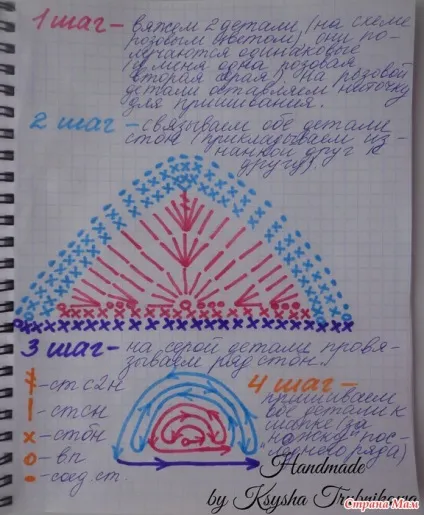 1 шаг – вяжем 2 детали (на схеме
розовым цветом), они по-
лучаются одинаковые
(у меня одна розовая
вторая серая) на розовой
детали оставляем ниточку
для пришивания.
2 шаг – связываем обе детали
стбн (прикладываем из-
нанкой друг к
другу).
3 шаг – на серой детали провя-
зываем ряд стбн.
– ст с2н
– стсн
x – стбн
о – вп
• – соед. ст.
4 шаг –
пришиваем
обе детали к
шапке (за
"ножку" пос-
леднего ряда)
Handmade
by Ksysha Trubnikova
Страна Мам